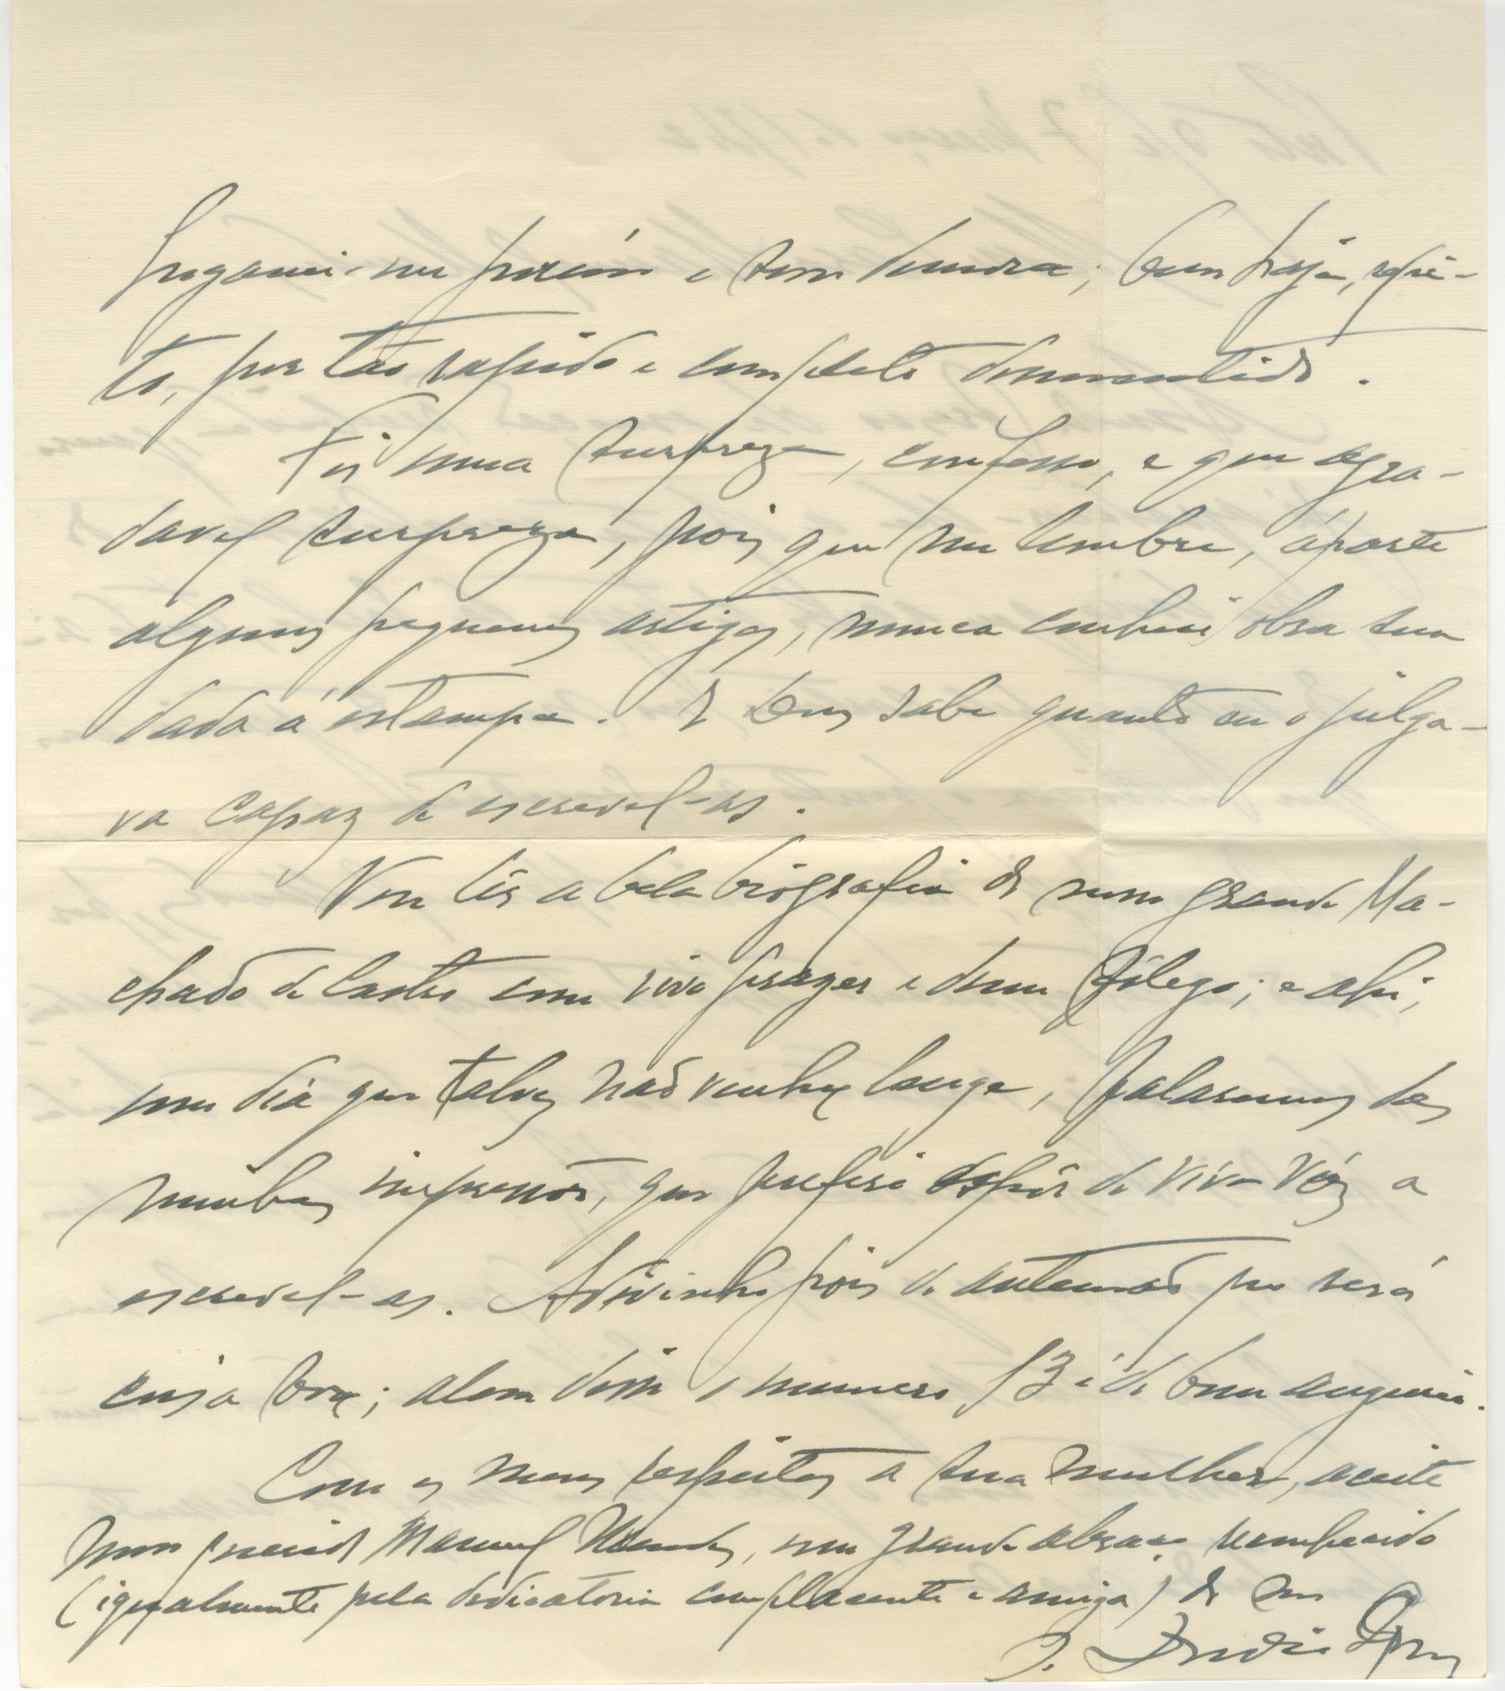 Enganei-me porém e sem demora; bem haja, repi-
to, por tão rapido e completo desmentido.
Foi uma surpreza, confesso, e que agra-
davel surpreza, pois que me lembre, áparte
alguns pequenos artigos, nunca conheci obra sua
dada á estampa. E Deus sabe quanto eu o julga-
va capaz de escrevel-as.
Vou lêr a bela biografia do nosso grande Ma-
chado de Castro com vivo prazer e dum fôlego; e ahi,
um dia que talvez não venha longe, falaremos das
minhas impressões, que prefiro expôr de viva vóz a
escrevel-as. Adivinho pois de antemão que será
coisa bôa; alem disso o numero 13 é de bom augurio.
Com os meus respeitos a sua mulher, aceite
meu querido Manuel Mendes, um grande abraço reconhecido
(igualmente pela dedicatoria complacente e amiga) do seu